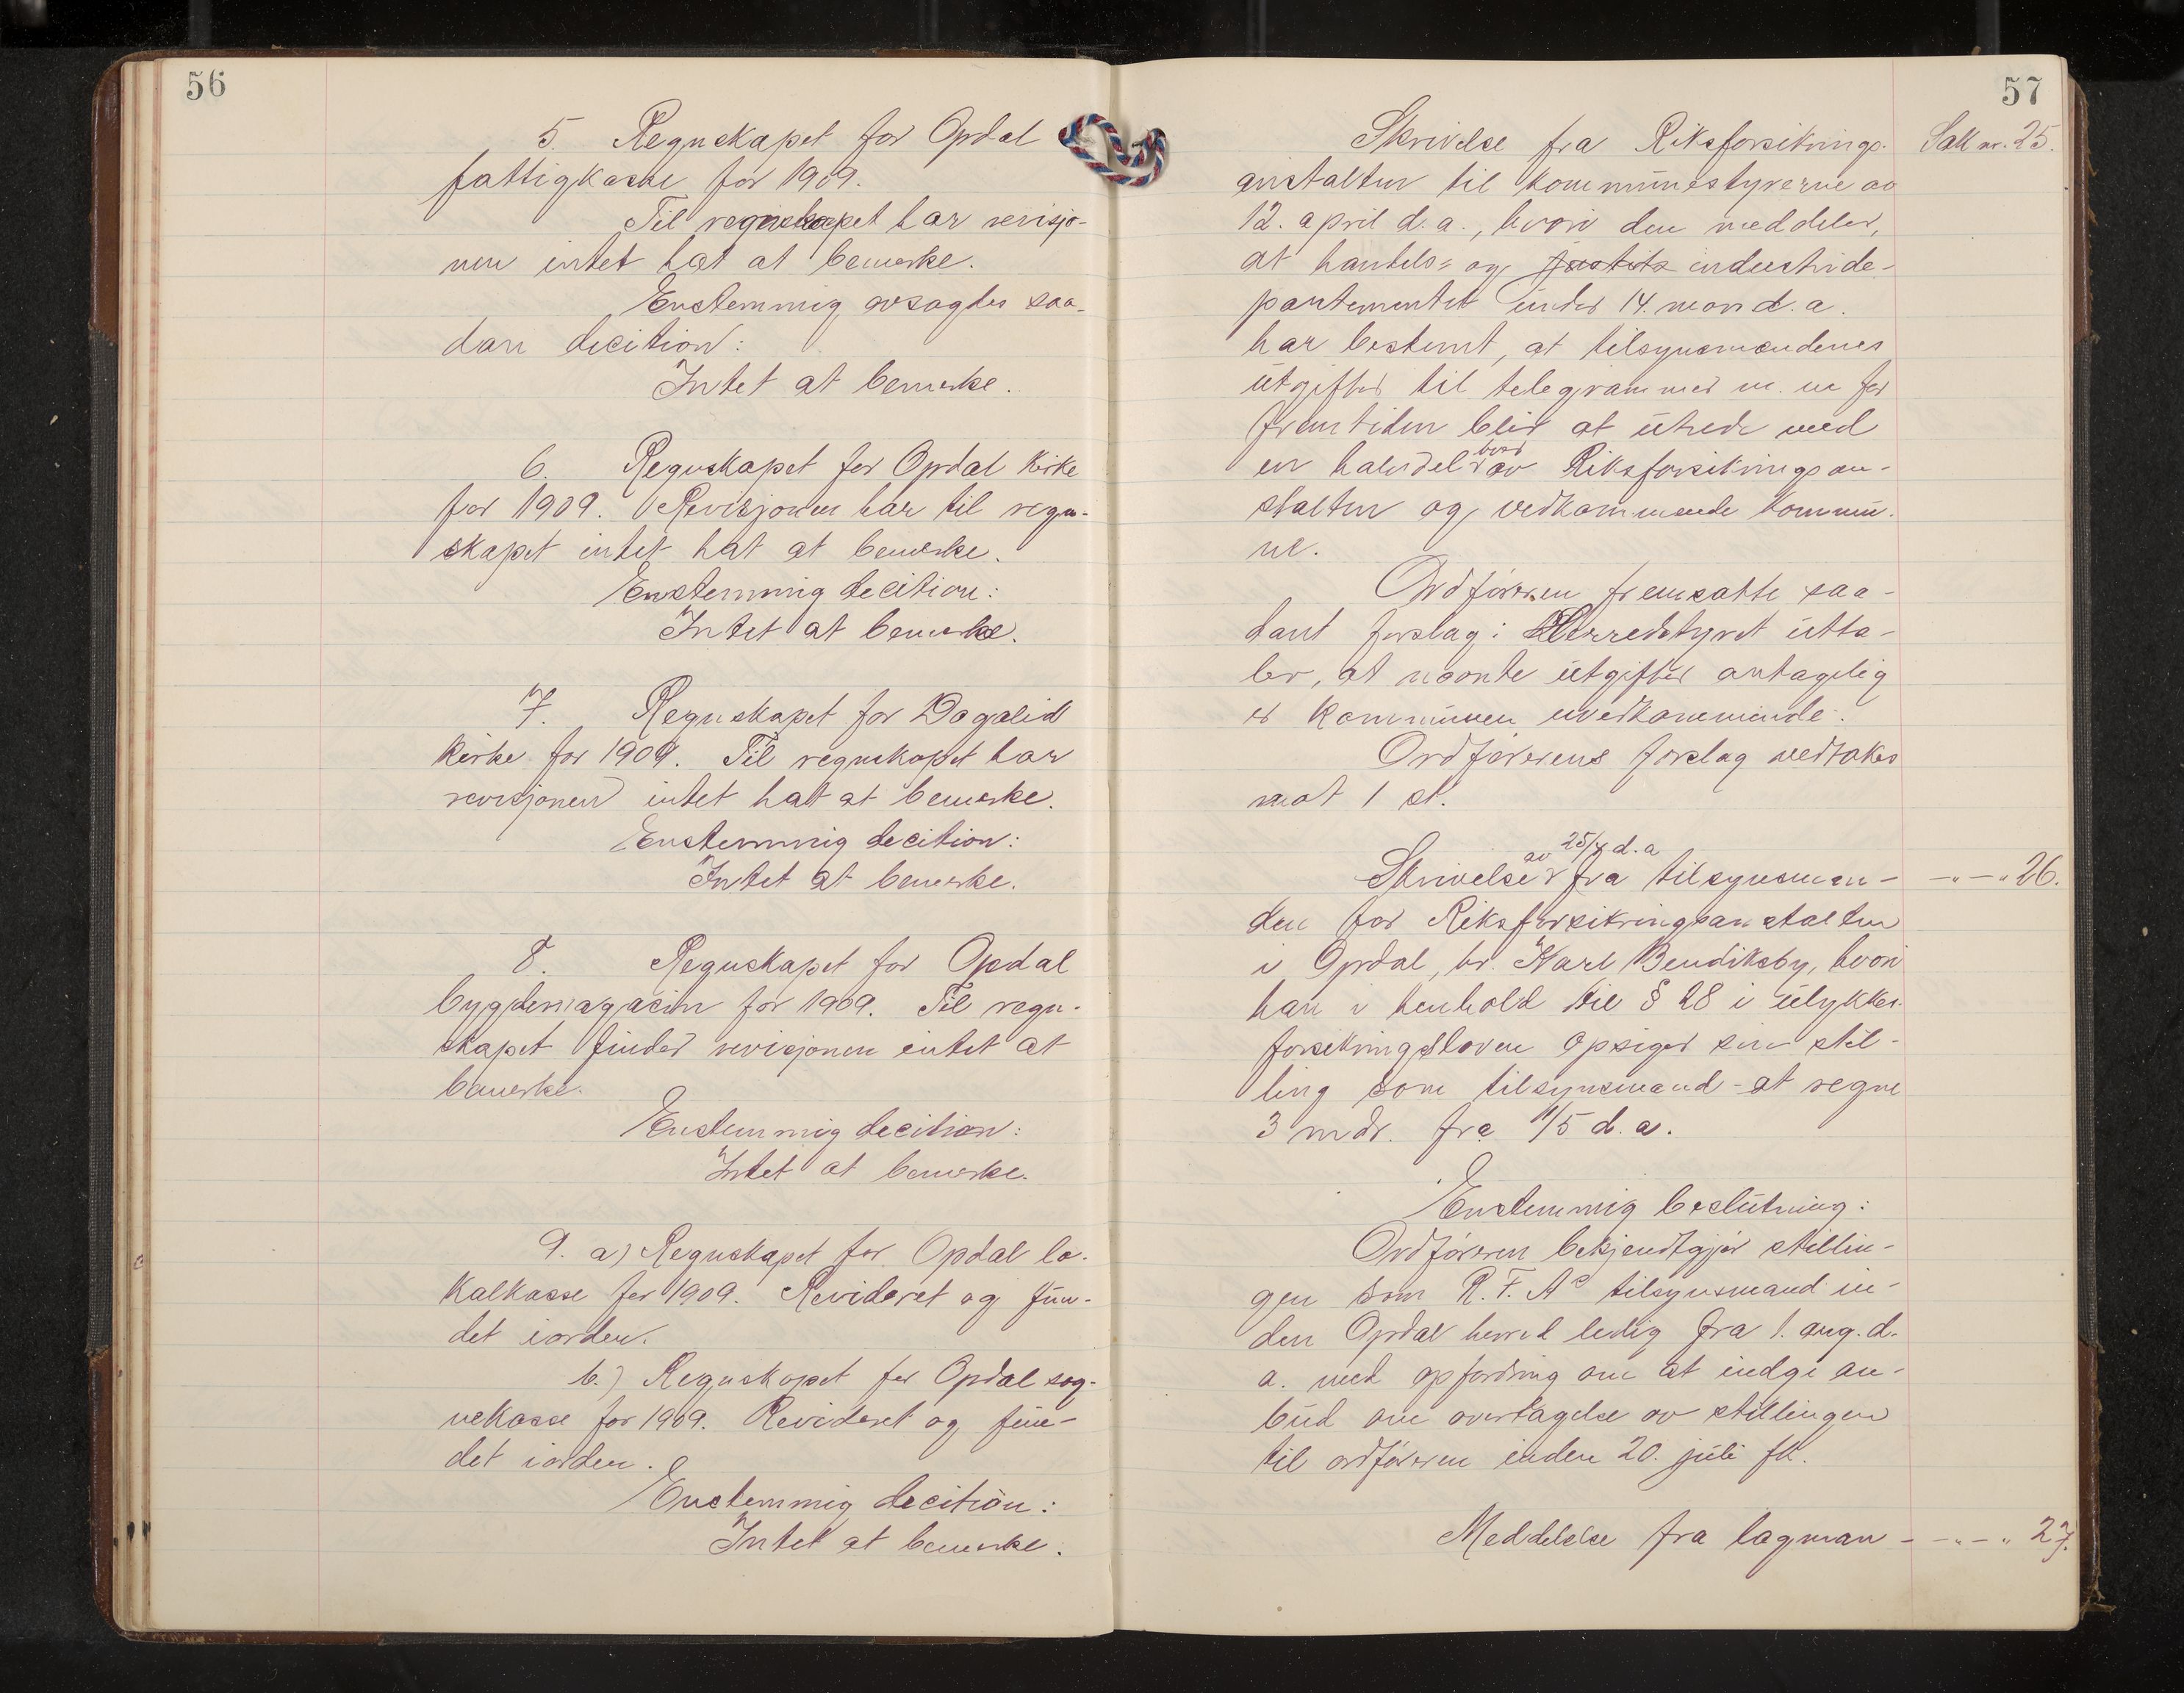 56
5. Regnskapet for Opdal
fattigkasse for 1909.
Til regnskapet har revisjo-
nen intet hat at bemerke.
Enstemmig avsagdes saa-
dan decition:
Intet at bemerke.
6. Regnskapet for Opdal kirke
for 1909. Revisjonen har til regn-
skapet intet hat at bemerke.
Enstemmig decition:
Intet at bemerke.
7. Regnskapet for Dagalid
kirke for 1909. Til regnskapet har
revisjonen intet hat at bemerke.
Enstemmig decition:
Intet at bemerke.
8. Regnskapet for Opdal
bygdemagasin for 1909. Til regn-
skapet finder revisjonen intet at
bemerke.
Enstemmig decition:
Intet at bemerke.
9. a) Regnskapet for Opdal lo-
kalkasse for 1909. Revideret og fun-
det iorden.
b.) Regnskapet for Opdal sog-
nekasse for 1909. Revideret og fun-
det iorden.
Enstemmig decition:
Intet at bemerke.
57
Skrivelse fra Riksforsikrings- Sak nr. 25.
anstalten til kommunestyrerne av
12. april d.a., hvori den meddeler,
at handels- og justits industride-
partementet under 14. mars d.a.
har bestemt, at tilsynsmændenes
utgifter til telegrammer m.m for
fremtiden blir at utrede med
en halvdel hver av Riksforsikringsan-
stalten og vedkommende kommu-
ne.
Ordføreren fremsatte saa-
dant forslag: Herredstyret utta-
ler, at nævnte utgifter antagelig
er kommunen uvedkommende.
Ordførerens forslag vedtakes
mot 1 st.
Skrivelse av 25/4 d.a fra tilsynsman- -"-" 26.
den for Riksforsikringsanstalten
i Opdal, hr. Karl Bendiksby, hvori
han i henhold til § 28 i ulykkes-
forsikringsloven opsiger sin stil-
ling som tilsynsmand - at regne
3 mdr. fra 1/5 d.a.
Enstemmig beslutning:
Ordføreren bekjendtgjør stillin-
gen som R.F.As tilsynsmand in-
den Opdal herred ledig fra 1. aug. d.
a. med opfordring om at indgi an-
bud om overtagelse av stillingen
til ordføreren inden 20. juli fk.
Meddelelse fra lagman- -"-" 27.